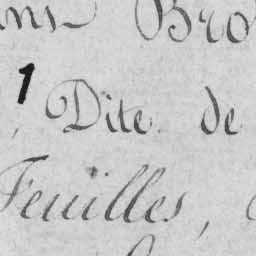 Bro
1
, Dite de
Feuilles,